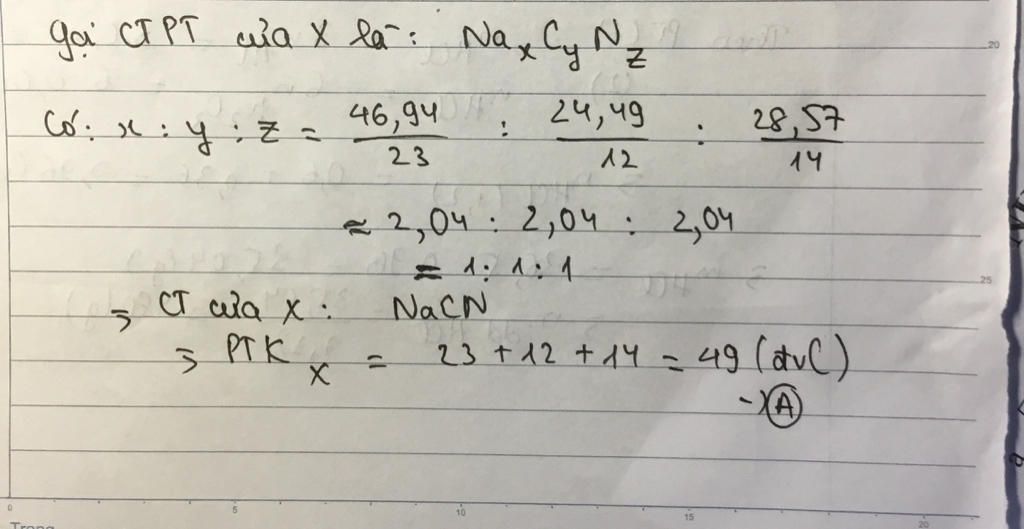 gọi CTPT của X là: NaxCyNz
Có: x : y : z = 46,94/23 : 24,49/12 : 28,57/14
≈ 2,04 : 2,04 : 2,04
= 1 : 1 : 1
⇒ CT của X : NaCN
⇒ PTK X = 23 + 12 + 14 = 49 (đvC)
→ A
20
25
0 5 10 15 20
Trang